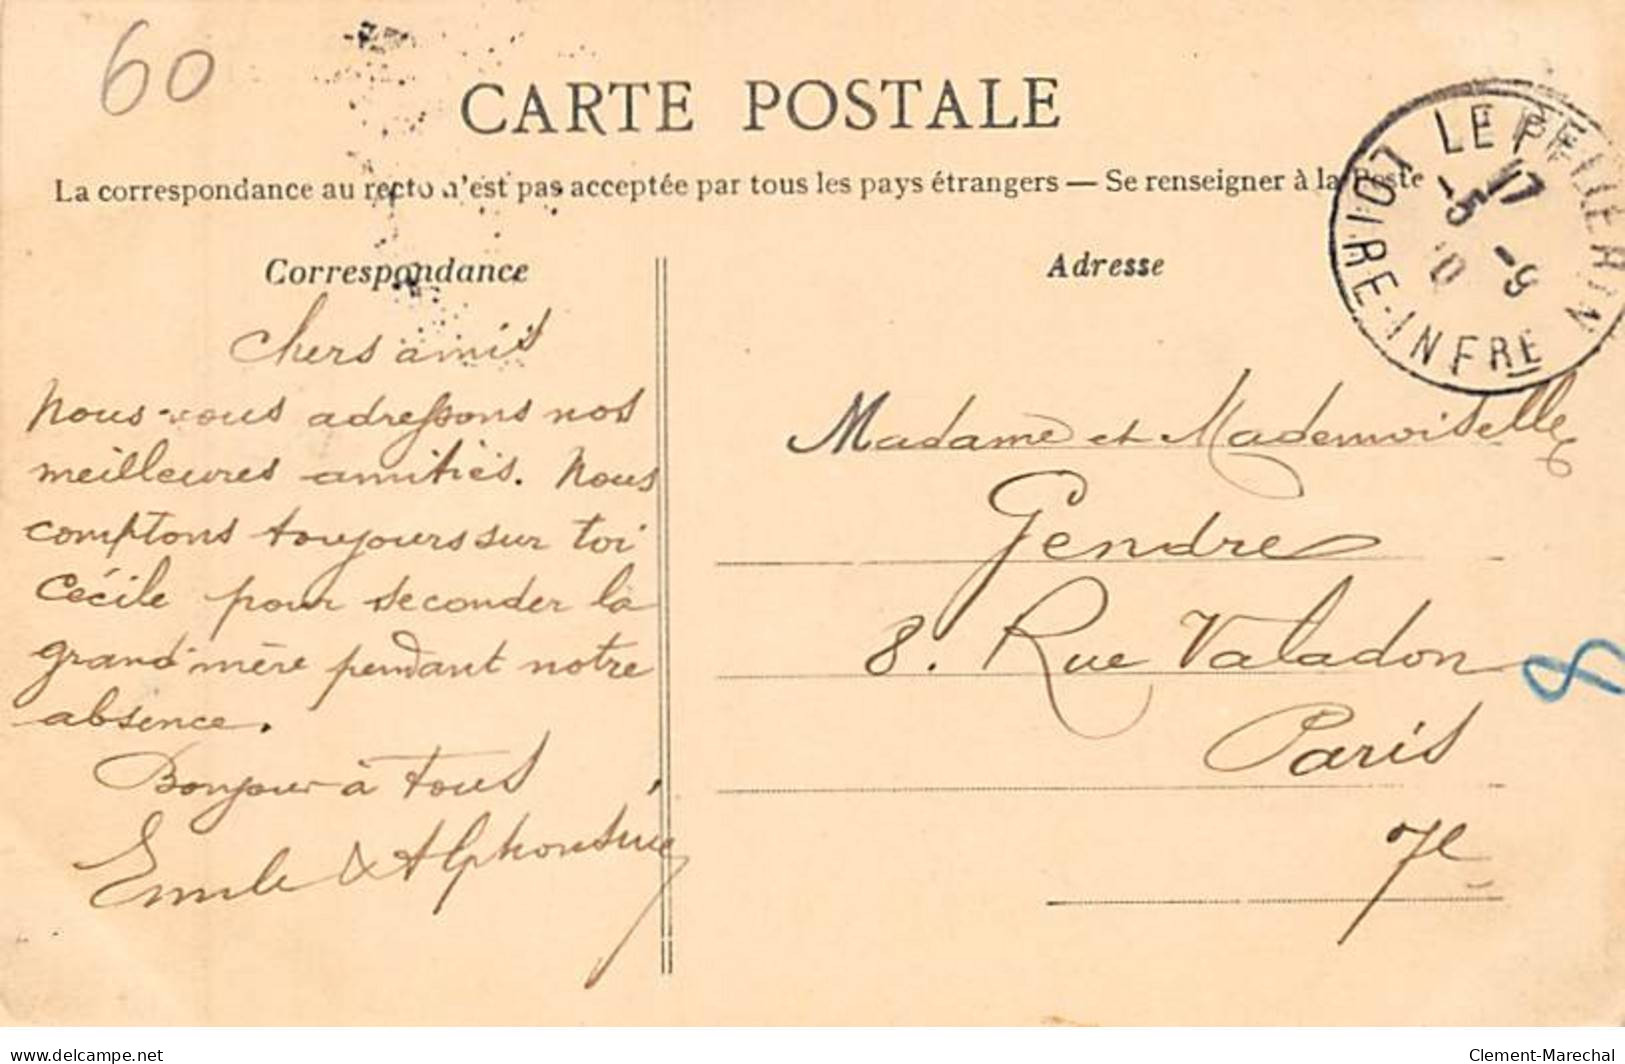 60
CARTE POSTALE
La correspondance au recto n'est pas acceptée par tous les pays étrangers — Se renseigner à la Poste
Correspondance
Chers amis
Nous vous adressons nos
meilleures amitiés. Nous
comptons toujours sur toi
Cécile pour seconder la
grand'mère pendant notre
absence.
Bonjour à tous
Emile & Alphonsine
Adresse
Madame et Mademoiselle
Gendre
8. Rue Valadon
Paris
7e
8
LE PELLERIN
LOIRE-INFRE
17
delcampe.net
Clement-Marechal